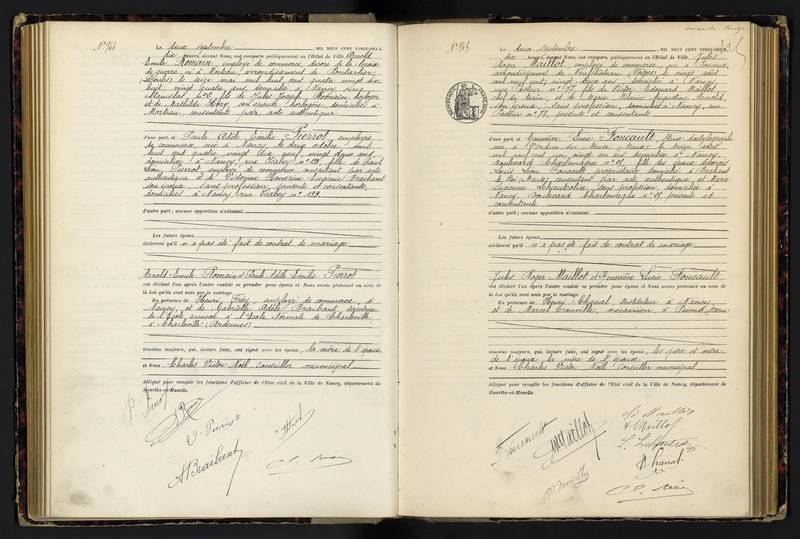 Le deux septembre MIL NEUF CENT VINGT-DEUX,
dix heures, devant Nous, ont comparu publiquement en l'Hôtel de Ville, Arnold
Emile Romain, employé de commerce, décoré de la Croix
de guerre, né à Morteau, arrondissement de Pontarlier
(Doubs) le seize mai mil huit cent quatre vingt dix
huit, vingt quatre ans, domicilié à Nancy, rue
fils de Jules Joseph Romain, horloger
et de Mathilde son épouse, horlogère, domiciliés à
Morteau, consentants par acte authentique
d'une part, et Paule Adèle Emilie Pierrot, employée
de commerce, née à Nancy, le deux octobre mil
huit cent quatre vingt dix neuf, vingt deux ans,
domiciliée à Nancy, rue n° 139, fille de Paul
Léon Pierrot, employé de commerce, consentant par acte
authentique et de Eugénie Braibant
son épouse, sans profession, présente et consentante,
domiciliés à Nancy, rue n° 139
d'autre part; aucune opposition n'existant
Les futurs époux
déclarent qu'il n'a pas été fait de contrat de mariage
Arnold Emile Romain et Paule Adèle Emilie Pierrot
ont déclaré l'un après l'autre vouloir se prendre pour époux et Nous avons prononcé au nom de
la Loi qu'ils sont unis par le mariage.
En présence de Henri employé de commerce, à
Nancy, et de Gabrielle Adèle Braibant, directrice
de l'Ecole annexe à l'Ecole Normale de Charleville,
à Charleville (Ardennes)
témoins majeurs, qui, lecture faite, ont signé avec les époux, la mère de l'épouse
et Nous Charles Victor Noël Conseiller municipal
délégué pour remplir les fonctions d'officier de l'Etat civil de la Ville de Nancy, département de
Meurthe-et-Moselle.
A Braibant
Le deux septembre MIL NEUF CENT VINGT-DEUX,
dix heures, devant Nous, ont comparu publiquement en l'Hôtel de Ville, Jules
Roger Maillot, employé de commerce, né à
arrondissement de Neufchâteau (Vosges) le vingt août
mil neuf cent, vingt deux ans, domicilié à Nancy,
rue Pasteur n° 77, fils de Victor Edouard Maillot
et de Marie Arnold,
son épouse, sans profession, domiciliés à Nancy, rue
Pasteur n° 77, présents et consentants
d'une part, et Geneviève Lucie Foucault, sténo dactylographe
née à Verdun sur Meuse (Meuse) le treize
mil neuf cent un, vingt un ans, domiciliée à Nancy,
Boulevard Charlemagne n° fille des époux divorcés
Louis Foucault propriétaire domicilié à Brabant
consentant par acte authentique, et Marie
Lucienne sans profession, domiciliée à
Nancy, Boulevard Charlemagne n° présente et
consentante
d'autre part; aucune opposition n'existant
Les futurs époux
déclarent qu'il n'a pas été fait de contrat de mariage
Jules Roger Maillot et Geneviève Lucie Foucault
ont déclaré l'un après l'autre vouloir se prendre pour époux et Nous avons prononcé au nom de
la Loi qu'ils sont unis par le mariage.
En présence de instituteur à Nancy,
et de Marcel mécanicien, à
témoins majeurs, qui, lecture faite, ont signé avec les époux, les père et mère
de l'époux, la mère de l'épouse
et Nous Charles Victor Noël Conseiller municipal
délégué pour remplir les fonctions d'officier de l'Etat civil de la Ville de Nancy, département de
Meurthe-et-Moselle.
Maillot